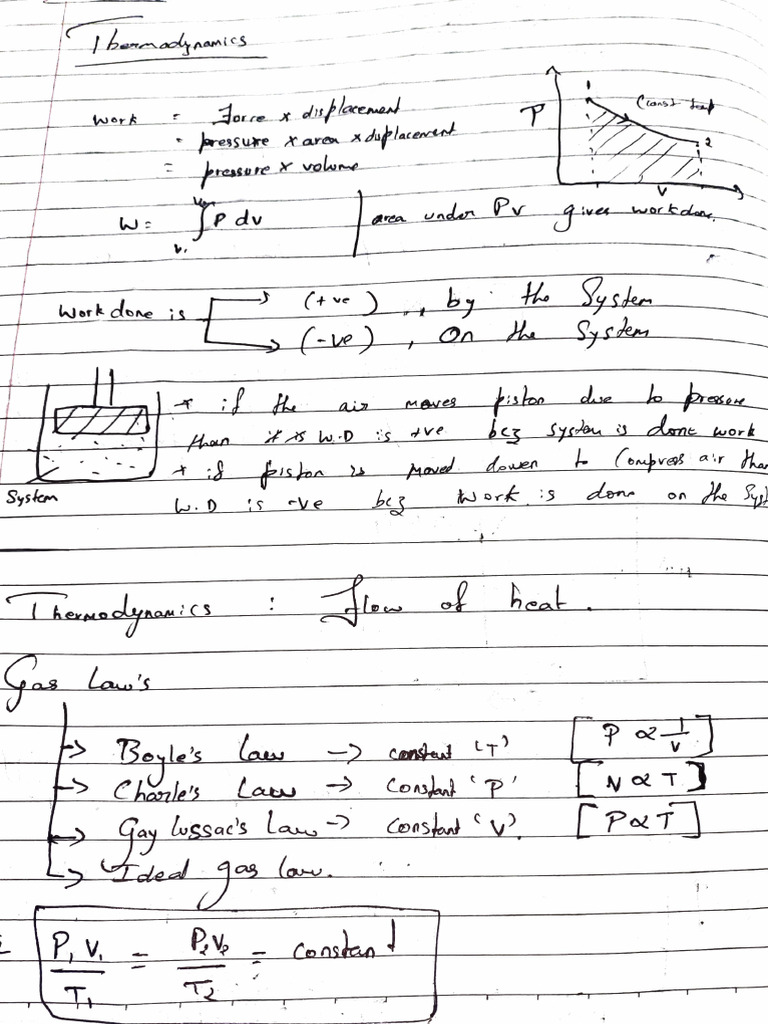 Thermodynamics
Work = Force x displacement
= pressure x area x displacement
= pressure x volume
P
1
Const temp
2
V
W = ∫ P dv
V₁
area under PV gives workdone.
Workdone is (+ve), by the System
(-ve), On the System
* if the air moves piston due to pressure
than W.D is +ve bcz system is done work
* if piston is moved down to Compress air than
W.D is -ve bcz Work is done on the Syst
System
Thermodynamics : Flow of heat.
Gas Law's
→ Boyle's Law → constant 'T' [P ∝ 1/V]
→ Charle's Law → Constant 'P' [V ∝ T]
→ Gay lussac's Law → Constant 'V'. [P ∝ T]
→ Ideal gas law.
P₁V₁/T₁ = P₂V₂/T₂ = constant